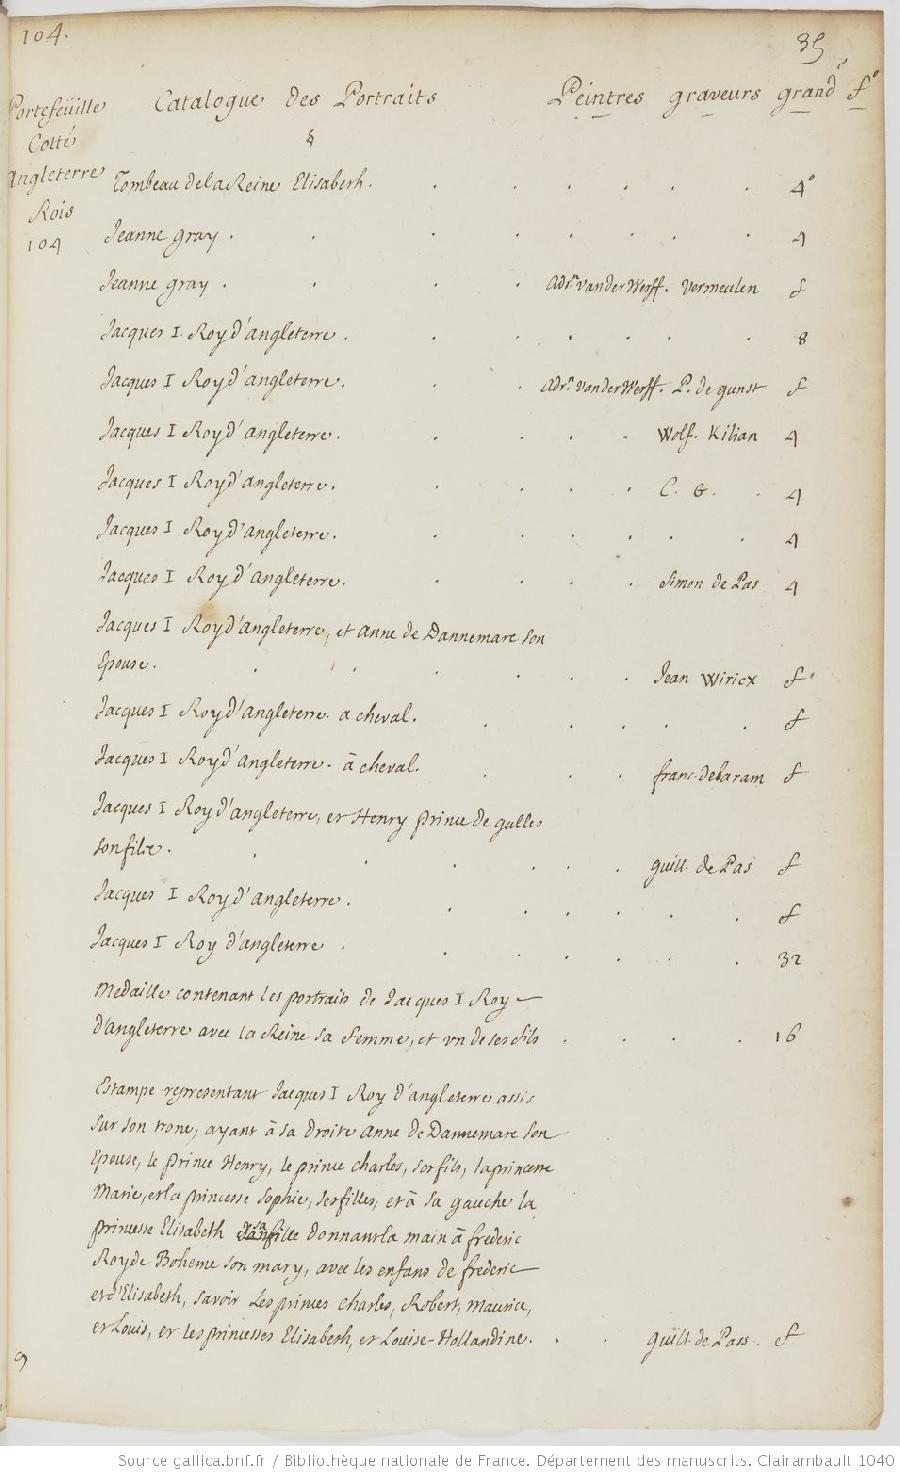 104.
35
Portefeüille
Cotté
Angleterre
Rois
104
Catalogue des Portraits
Peintres graveurs grandʳ fᵒ
Tombeau de la Reine Elisabeth. 4°
Jeanne gray. 4
Jeanne gray. Adrⁿ vander Werff. Vermeulen f
Jacques I. Roy d'angleterre. 8
Jacques I Roy d'angleterre. Adrⁿ vander Werff. P. de gunst f
Jacques I Roy d'angleterre. Wolf. Kilian 4
Jacques I Roy d'angleterre. C. G. 4
Jacques I Roy d'angleterre. 4
Jacques I Roy d'angleterre. Simon de Pas 4
Jacques I Roy d'angleterre, et Anne de Dannemarc son
Epouse. Jean Wiricx f°
Jacques I Roy d'Angleterre a cheval. f
Jacques I Roy d'angleterre. à cheval. franc. delaram f
Jacques I Roy d'angleterre, et Henry prince de galles
son filz. guill. de Pas f
Jacques I Roy d'angleterre. f
Jacques I Roy d'angleterre 32
Medaille contenant les portraits de Jacques I Roy
d'Angleterre avec la Reine sa femme, et un de ses fils 16
Estampe representant Jacques I Roy d'angleterre assis
sur son trone, ayant à sa droite Anne de Dannemarc son
Epouse, le prince Henry, le prince charles, ses fils, la princesse
Marie, et la princesse Sophie, ses filles, et à sa gauche la
princesse Elisabeth sa fille donnant la main à frederic
Roy de Boheme son mary, avec les enfans de frederic
et d'Elisabeth, savoir Les princes charles, Robert, maurice,
et Louis, et les princesses Elisabeth, et Louise-Hollandine. guill. de Pass. f
Source gallica.bnf.fr / Bibliothèque nationale de France. Département des manuscrits. Clairambault 1040